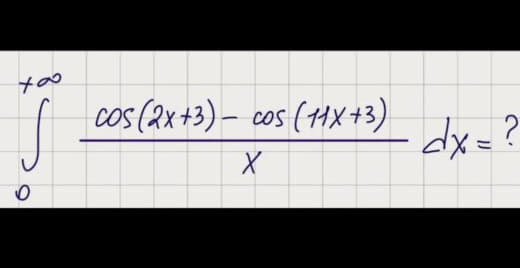 +∞
∫
0
cos(2x+3) - cos(11x+3)
x
dx = ?